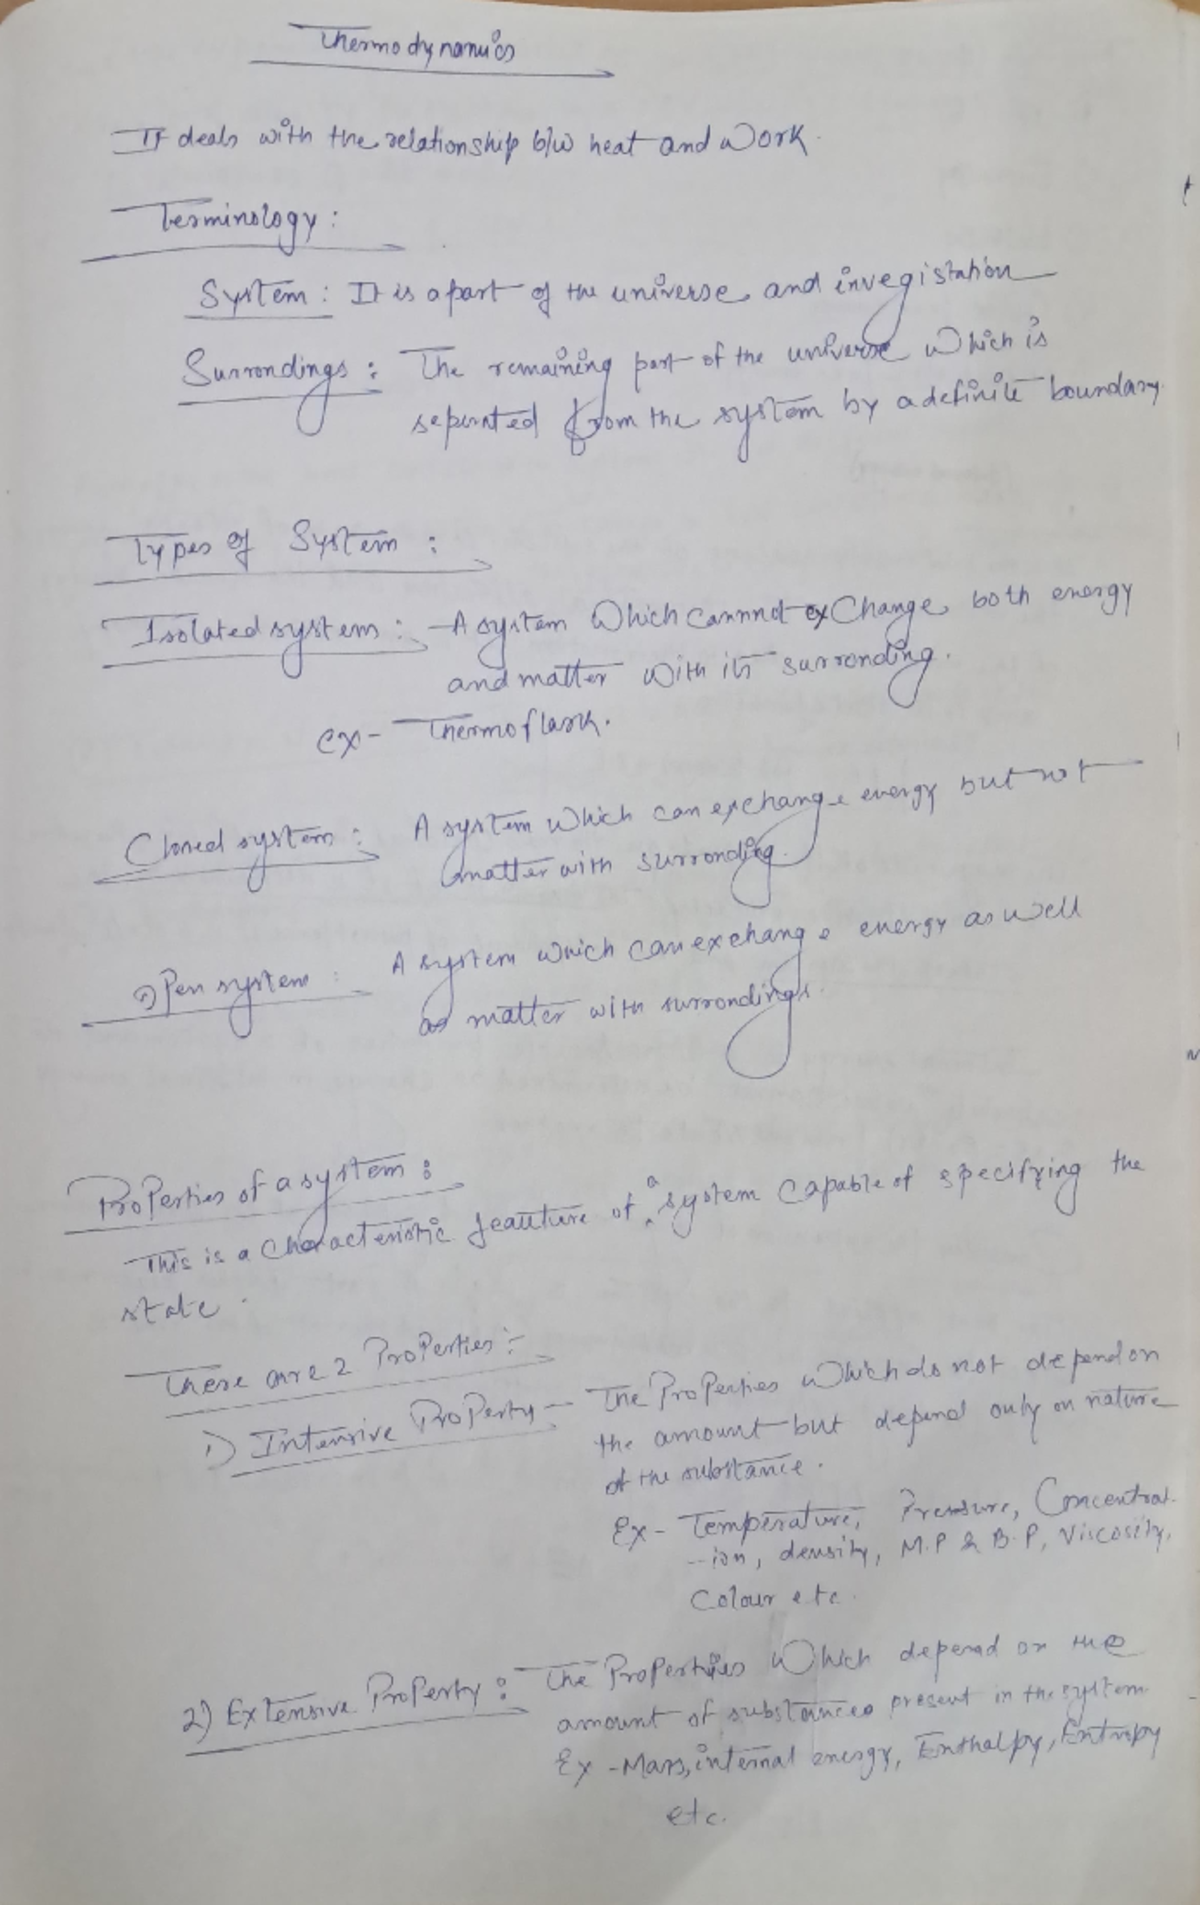 Thermodynamics
It deals with the relationship b/w heat and work.
Terminology :
System : It is a part of the universe and invegistation
Surrondings : The remaining part of the universe which is
seperated from the system by a definite boundary.
Types of System :
Isolated system : - A system which cannnot exchange both energy
and matter with its surronding.
ex - Thermoflask.
Closed system : A system which can exchange energy but not
matter with surronding.
Open system : A system which can exchange energy as well
as matter with surrondings.
Properties of a system :
This is a characteristic feauture of a system capable of specifying the
state.
There are 2 Properties :-
1) Intensive Property - The Properties which do not depend on
the amount but depend only on nature
of the substance.
Ex - Temperature, Pressure, Concentrat-
-ion, density, M.P & B.P, Viscosity,
Colour etc.
2) Extensive Property : The Properties which depend on the
amount of substances present in the system.
Ex - Mass, internal energy, Enthalpy, Entropy
etc.